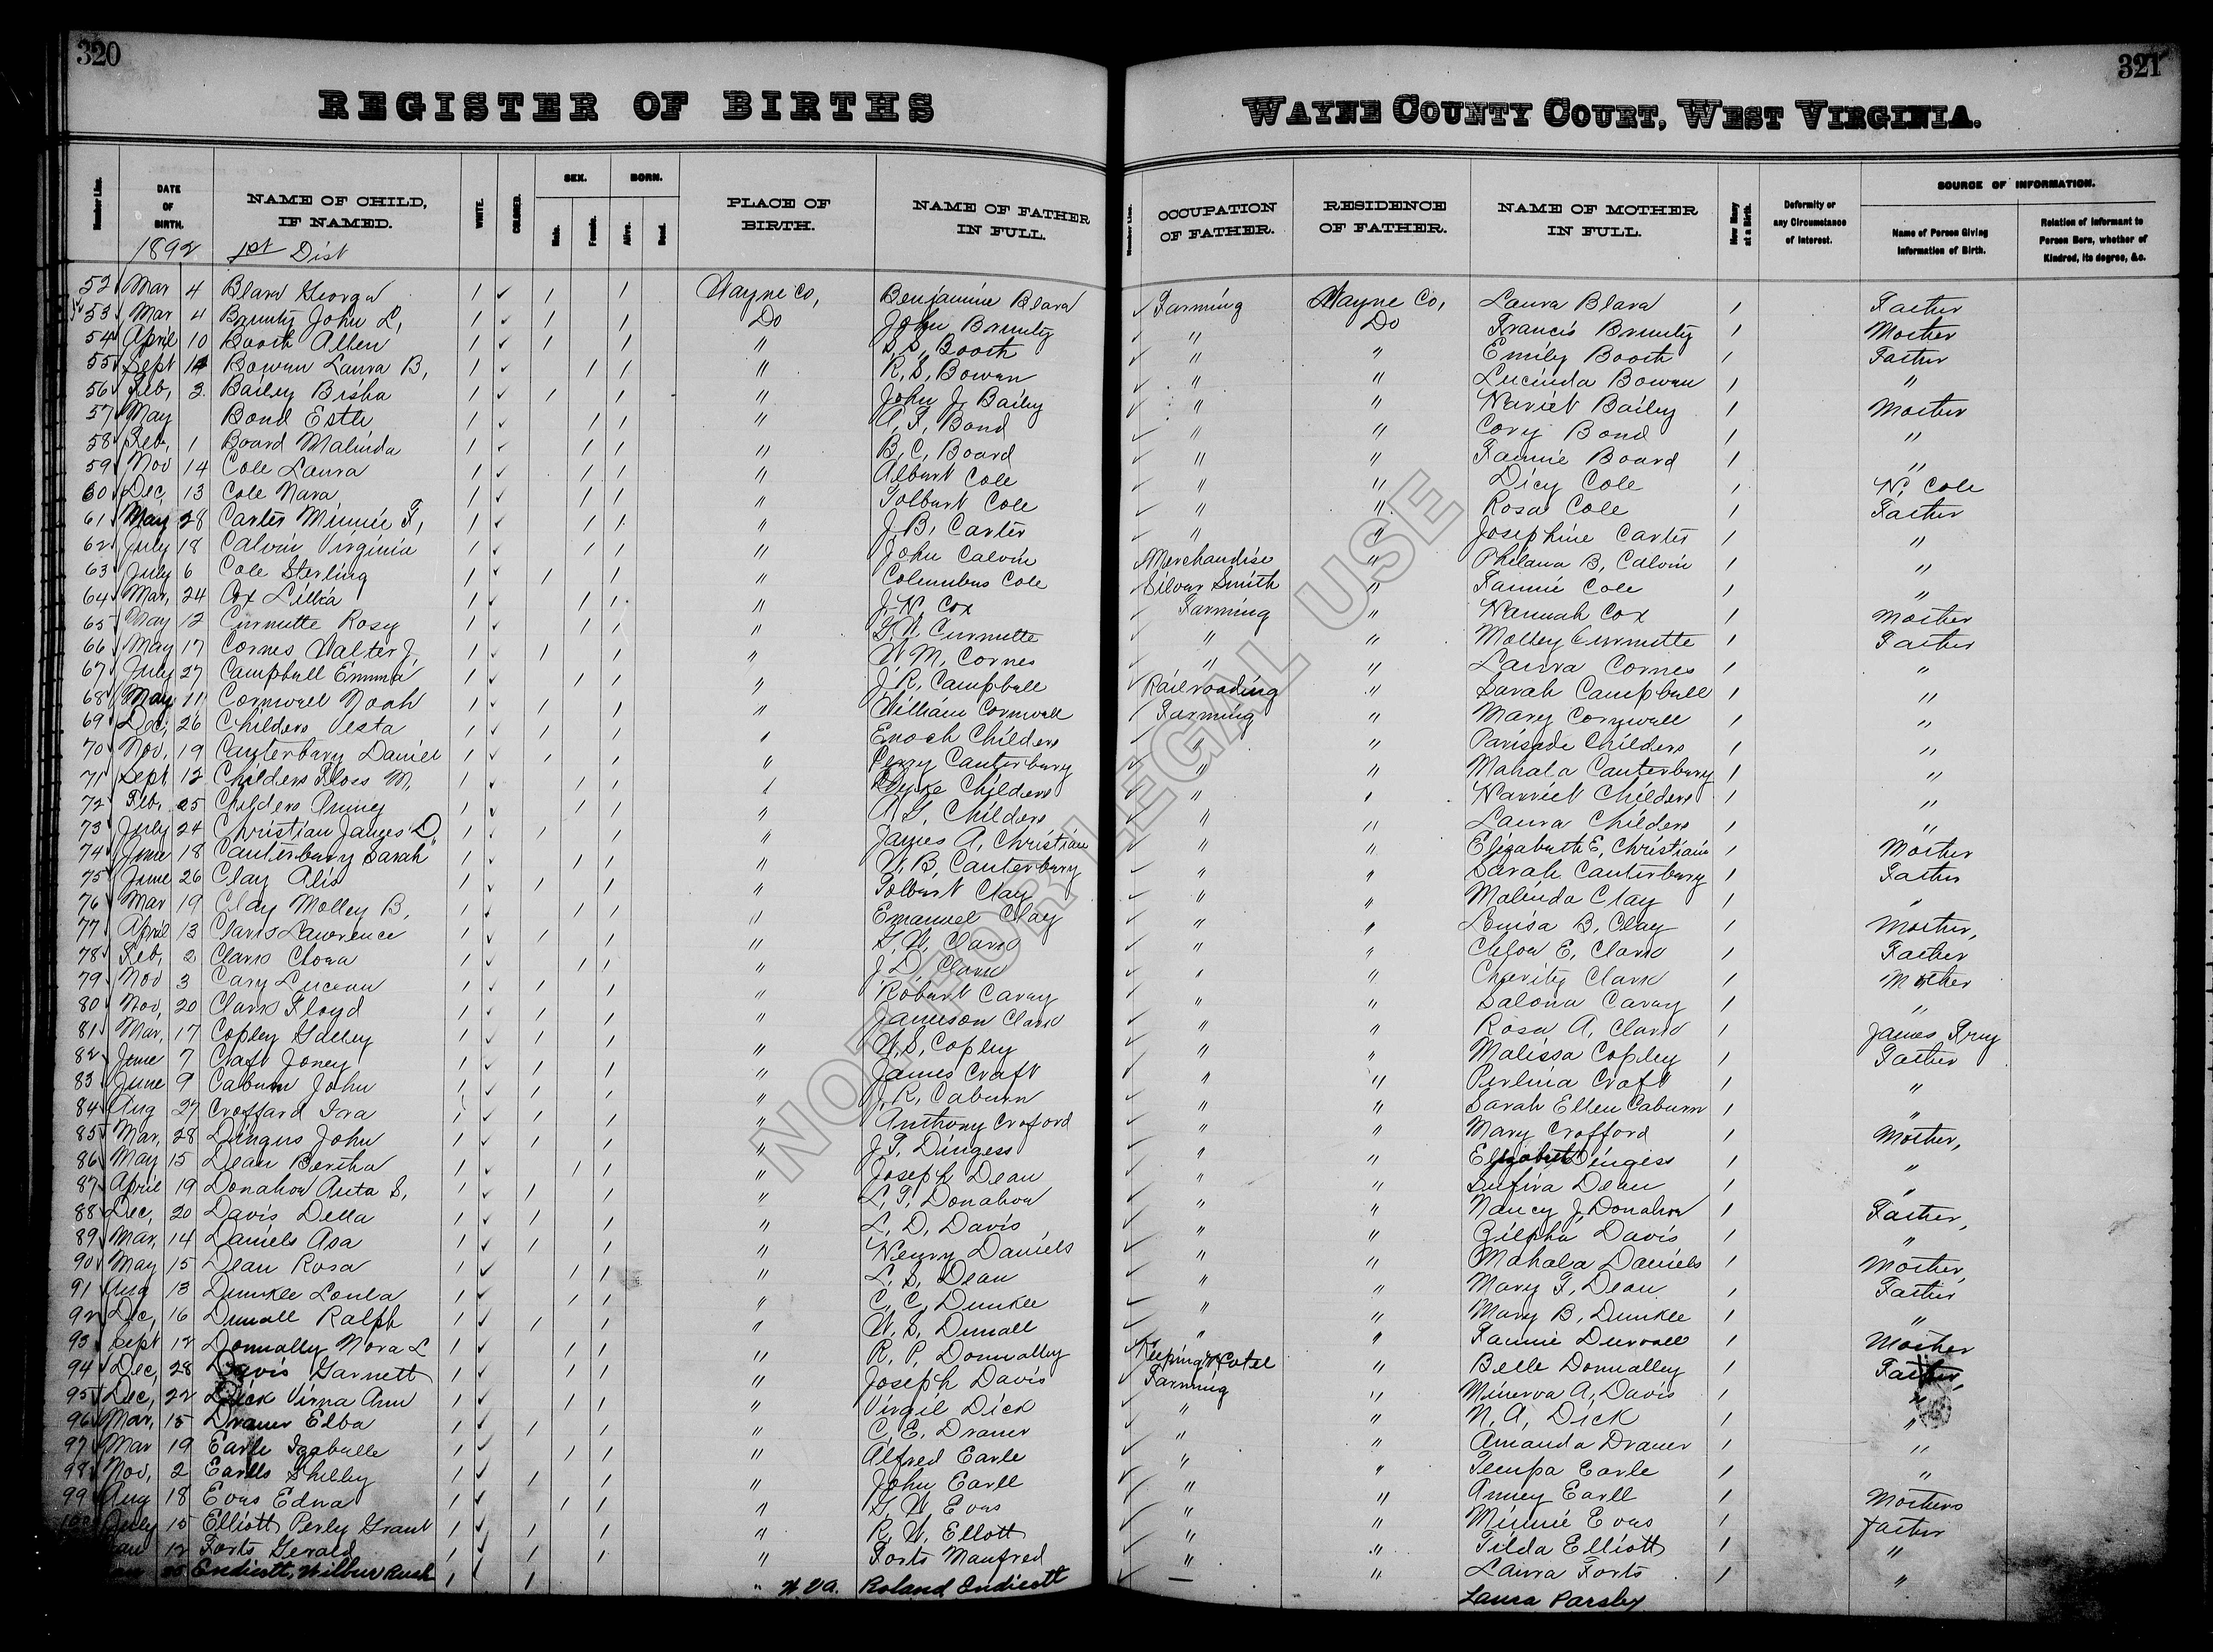 320
321
REGISTER OF BIRTHS
WAYNE COUNTY COURT, WEST VIRGINIA.
Number Line. DATE OF BIRTH. NAME OF CHILD, IF NAMED. WHITE. COLORED. SEX. Male. Female. BORN. Alive. Dead. PLACE OF BIRTH. NAME OF FATHER IN FULL. Number Line. OCCUPATION OF FATHER. RESIDENCE OF FATHER. NAME OF MOTHER IN FULL. How Many at a Birth. Deformity or any Circumstance of Interest. SOURCE OF INFORMATION. Name of Person Giving Information of Birth. Relation of Informant to Person Born, whether of Kindred, its degree, &c.
1892 1st Dist
52 Mar 4 Blara George 1 ✓ 1 1 Wayne Co, Benjamine Blara ✓ Farming Wayne Co, Laura Blara 1 Father
53 Mar 4 Brumty John L, 1 ✓ 1 1 Do John Brumty " Do Francis Brumty 1 Mother
54 April 10 Booth Allen 1 ✓ 1 1 " S. S. Booth ✓ " " Emily Booth 1 Father
55 Sept 14 Bowen Laura B, 1 ✓ 1 1 " R, S, Bowen ✓ " " Lucinda Bowen 1 "
56 Feb, 3 Bailey Bisha 1 ✓ 1 1 " John J, Bailey ✓ " " Harriet Bailey 1 Mother
57 May Bond Estle 1 ✓ 1 1 " A, F, Bond ✓ " " Cory Bond 1 "
58 Feb, 1 Board Malinda 1 ✓ 1 1 " B, C, Board ✓ " " Fannie Board 1 "
59 Nov 14 Cole Laura 1 ✓ 1 1 " Albert Cole ✓ " " Dicy Cole 1 N, Cole
60 Dec, 13 Cole Nara 1 ✓ 1 1 " Tolbert Cole ✓ " " Rosa Cole 1 Father
61 May 28 Carter Minnie F, 1 ✓ 1 1 " J. B, Carter ✓ " " Josephine Carter 1 "
62 July 18 Calvin Virginia 1 ✓ 1 1 " John Calvin Merchandise " Philana B, Calvin 1 "
63 July 6 Cole Sterling 1 ✓ 1 1 " Columbus Cole Silver Smith " Fannie Cole 1 "
64 Mar, 24 Cox Lillia 1 ✓ 1 1 " J. H, Cox Farming " Hannah Cox 1 Mother
65 May 12 Curnutte Rosy 1 ✓ 1 1 " G. W. Curnutte ✓ " " Molley Curnutte 1 Father
66 May 17 Cornes Walter J, 1 ✓ 1 1 " W. M, Cornes ✓ " " Laura Cornes 1 "
67 July 27 Campbell Emma 1 ✓ 1 1 " J. R, Campbell ✓ Railroading " Sarah Campbell 1 "
68 May 11 Cornwell Noah 1 ✓ 1 1 " William Cornwell ✓ Farming " Mary Cornwell 1 "
69 Dec, 26 Childers Vesta 1 ✓ 1 1 " Enoch Childers ✓ " " Parisade Childers 1 "
70 Nov, 19 Canterbury Daniel 1 ✓ 1 1 " Perry Canterbury ✓ " " Mahala Canterbury 1 "
71 Sept 12 Childers Floss M, 1 ✓ 1 1 " Childers ✓ " " Harriet Childers 1 "
72 Feb, 25 Childers Anney 1 ✓ 1 1 " Childers ✓ " " Laura Childers 1 "
73 July 24 Christian James D, 1 ✓ 1 1 " James A, Christian ✓ " " Elizabeth E, Christian 1 Mother
74 June 18 Canterbury Sarah 1 ✓ 1 1 " W. B, Canterbury ✓ " " Sarah Canterbury 1 Father
75 June 26 Clay Alis 1 ✓ 1 1 " Tolbert Clay ✓ " " Malinda Clay 1 "
76 Mar 19 Clay Molley B, 1 ✓ 1 1 " Emanuel Clay ✓ " " Louisa B, Clay 1 Mother,
77 April 13 Clark Lawrence 1 ✓ 1 1 " G. W, Clark ✓ " " Chloa E, Clark 1 Father
78 Feb, 2 Clark Cloua 1 ✓ 1 1 " J. D, Clark ✓ " " Charity Clark 1 Mother
79 Nov 3 Cary Lucean 1 ✓ 1 1 " Robert Caray ✓ " " Salona Caray 1 "
80 Nov, 20 Clark Floyd 1 ✓ 1 1 " Jameson Clark ✓ " " Rosa A, Clark 1 James Fry
81 Mar, 17 Copley 1 ✓ 1 1 " W. S, Copley ✓ " " Malissa Copley 1 Father
82 June 7 Craft Joney 1 ✓ 1 1 " James Craft ✓ " " Perlina Craft 1 "
83 June 9 Caburn John 1 ✓ 1 1 " J. R, Caburn ✓ " " Sarah Ellen Caburn 1 "
84 Aug 27 Croffard Ira 1 ✓ 1 1 " Anthony Croford ✓ " " Mary Crofford 1 Mother,
85 Mar, 28 Dingus John 1 ✓ 1 1 " J. F, Dingess ✓ " " Elizabeth Dingess 1 "
86 May 15 Dean Bertha 1 ✓ 1 1 " Joseph Dean ✓ " " Dean 1 "
87 April 19 Donahoe Auta S, 1 ✓ 1 1 " L. F, Donahoe ✓ " " Nancy J, Donahoe 1 Father,
88 Dec, 20 Davis Della 1 ✓ 1 1 " L. D, Davis ✓ " " Zilpha Davis 1 "
89 Mar, 14 Daniels Asa 1 ✓ 1 1 " Henry Daniels ✓ " " Mahala Daniels 1 Mother,
90 May 15 Dean Rosa 1 ✓ 1 1 " L. S, Dean ✓ " " Mary F, Dean 1 Father
91 Aug 13 Dunkle Loula 1 ✓ 1 1 " C, C, Dunkle ✓ " " Mary B, Dunkle 1 "
92 Dec, 16 Duvall Ralph 1 ✓ 1 1 " W. S, Duvall ✓ " " Fannie Duvall 1 Mother
93 Sept 12 Donnally Nora L 1 ✓ 1 1 " R, P, Donnalley Keeping Hotel " Belle Donnalley 1 Father,
94 Dec, 28 Davis Garnett 1 ✓ 1 1 " Joseph Davis Farming " Minerva A, Davis 1 "
95 Dec, 22 Dick Virna Ann 1 ✓ 1 1 " Virgil Dick ✓ " " N, A, Dick 1 "
96 Mar, 15 Draner Elba 1 ✓ 1 1 " C, E, Draner ✓ " " Amanda Draner 1 "
97 Mar 19 Earle Isabelle 1 ✓ 1 1 " Alfred Earle ✓ " " Earle 1 "
98 Nov, 2 Earlls Shelby 1 ✓ 1 1 " John Earll ✓ " " Anney Earll 1 Mothers
99 Aug 18 Evas Edna 1 ✓ 1 1 " G. W Evas ✓ " " Minnie Evas 1 Father
July 15 Elliott Perly Grant 1 ✓ 1 1 " R, W, Ellott ✓ " " Tilda Elliott 1 "
12 Forts Gerald 1 ✓ 1 1 " Forts Manfred ✓ " " Laura Forts 1 "
25 Endicott, Wilbur Rush 1 1 " W. VA. Roland Endicott — Laura Parsley
NOT FOR LEGAL USE